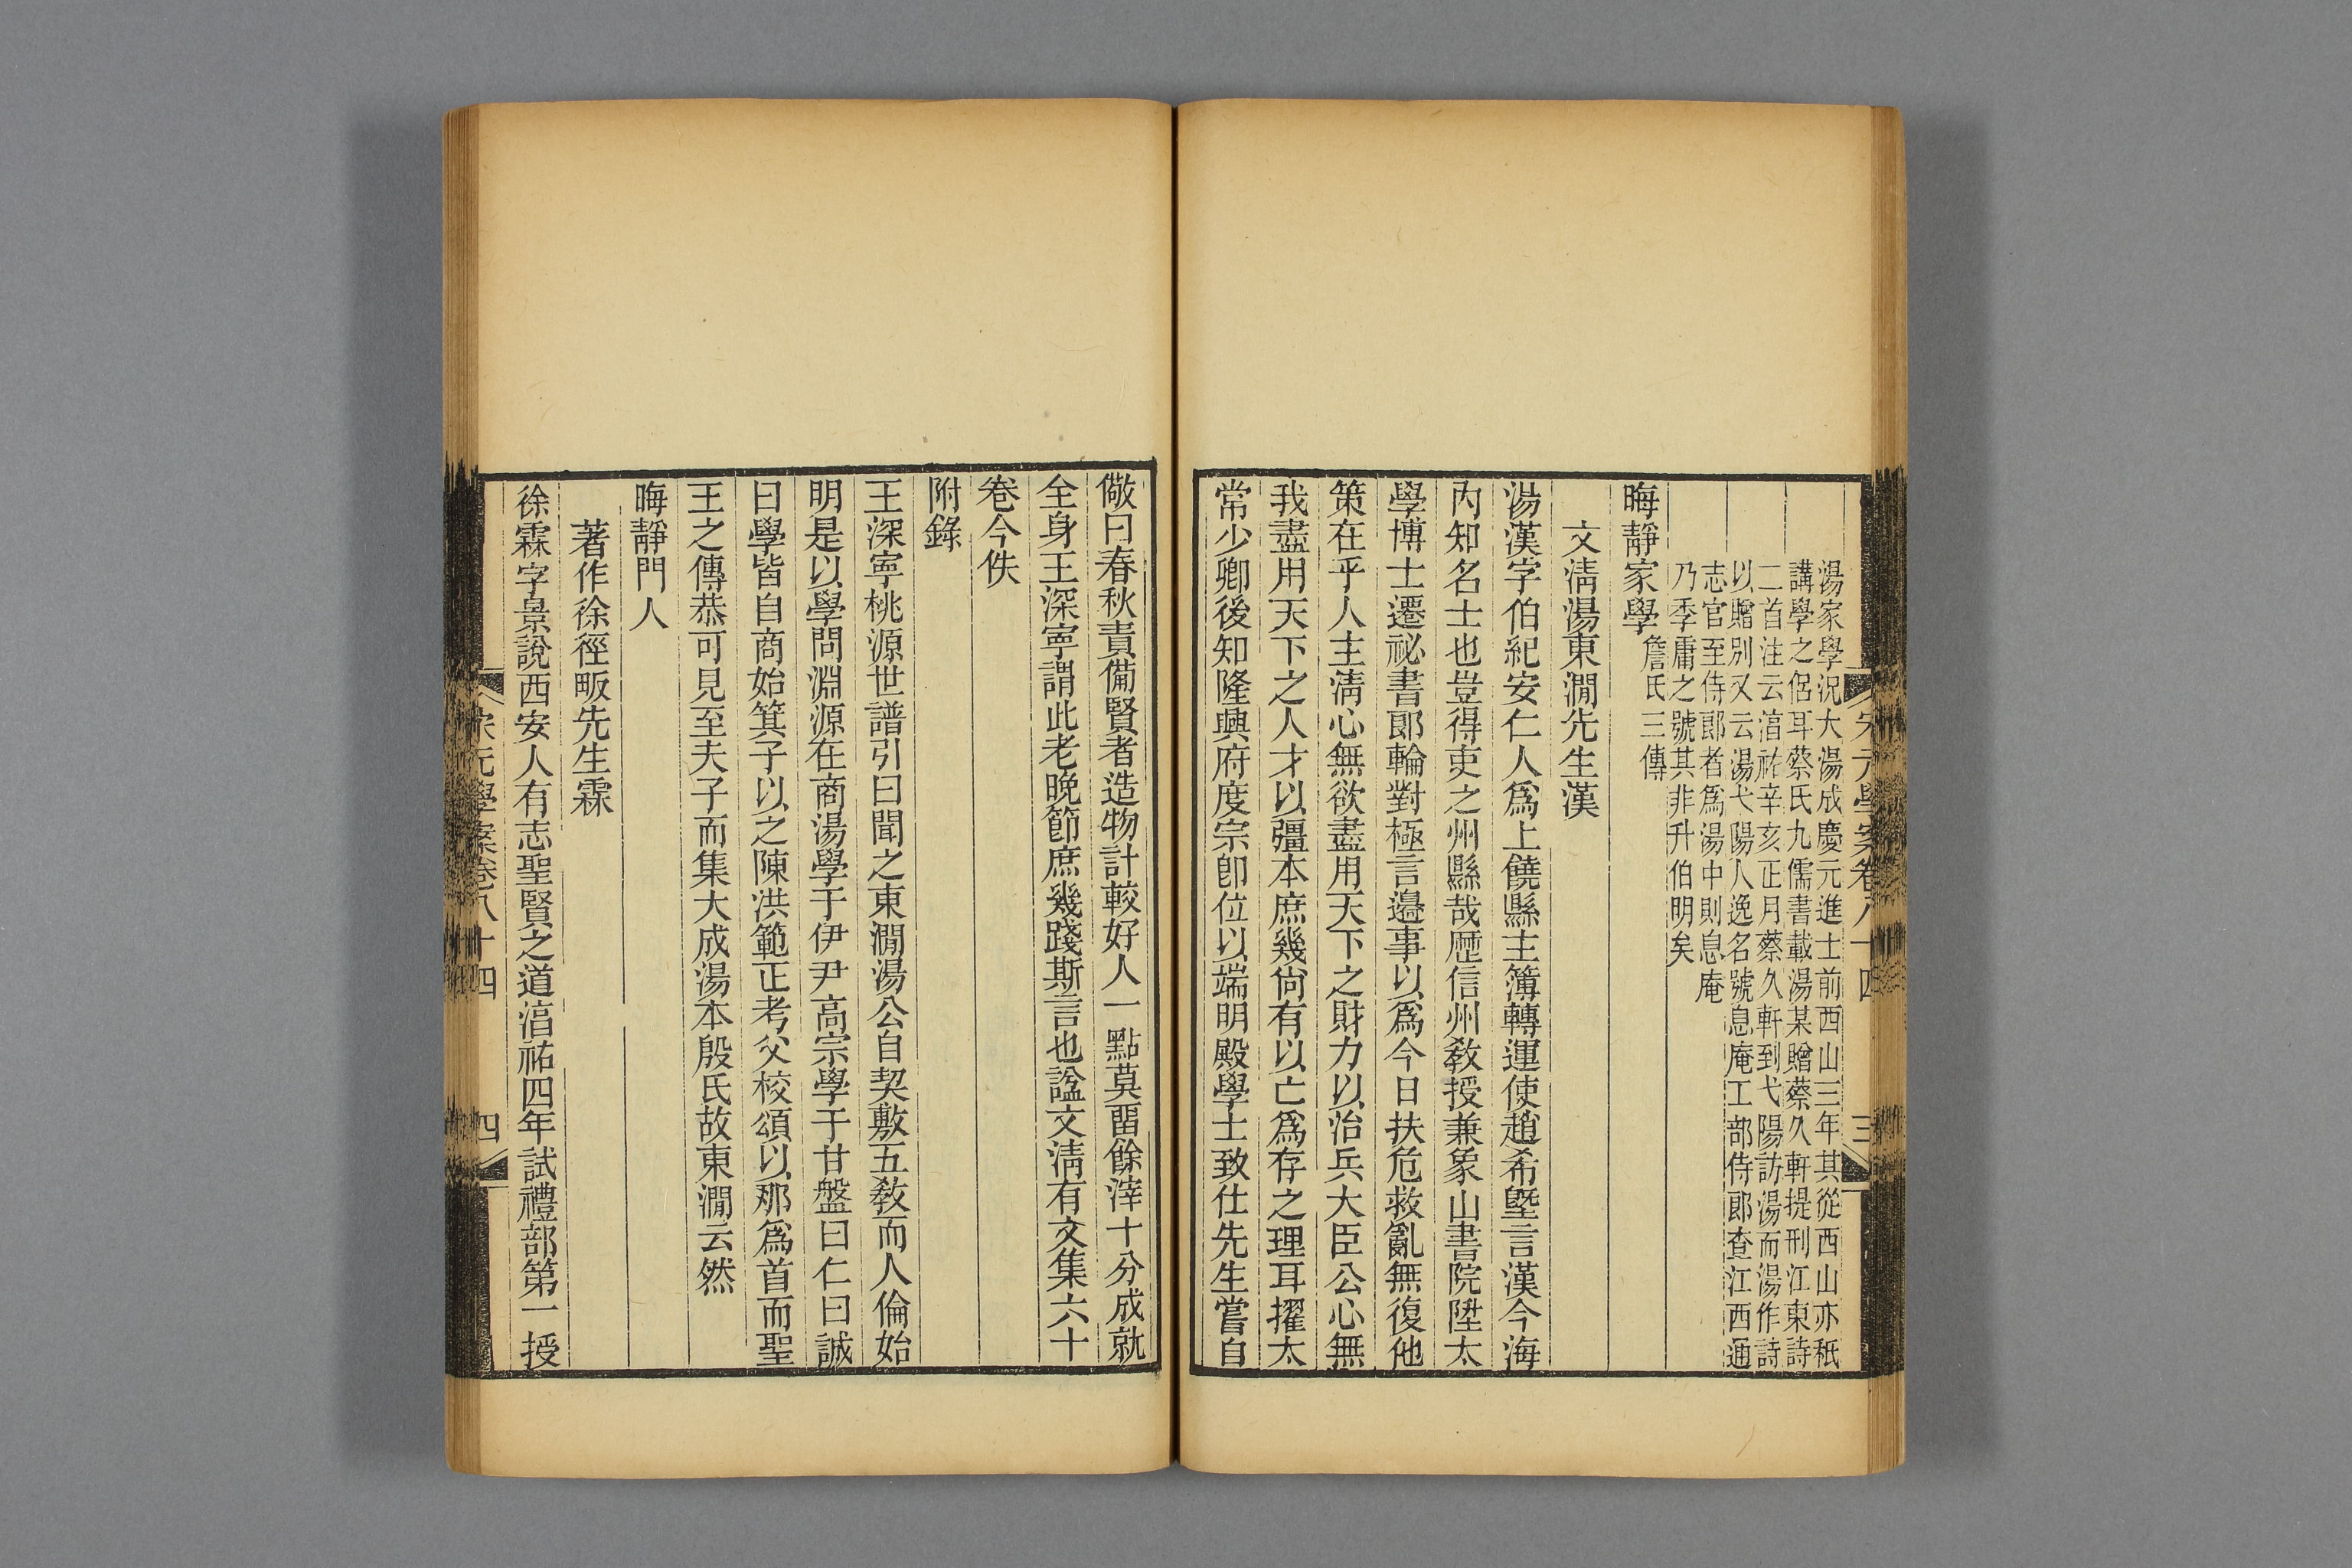 湯家學況大湯成慶元進士前西山三年其從西山亦秖
講學之侶耳蔡氏九儒書載湯某贈蔡久軒提刑江東詩
二首注云湻祐辛亥正月蔡久軒到弋陽訪湯而湯作詩
以贈別又云湯弋陽人逸名號息庵工部侍郎查江西通
志官至侍郎者爲湯中則息庵
乃季庸之號其非升伯明矣
晦靜家學詹氏三傳
文淸湯東澗先生漢
湯漢字伯紀安仁人爲上饒縣主簿轉運使趙希塈言漢今海
內知名士也豈得吏之州縣哉歷信州敎授兼象山書院陞太
學博士遷祕書郞輪對極言邊事以爲今日扶危救亂無復他
策在乎人主淸心無欲盡用天下之財力以治兵大臣公心無
我盡用天下之人才以彊本庶幾尙有以亡爲存之理耳擢太
常少卿後知隆興府度宗卽位以端明殿學士致仕先生嘗自
儆曰春秋責備賢者造物計較好人一點莫留餘滓十分成就
全身王深寧謂此老晚節庶幾踐斯言也諡文淸有文集六十
卷今佚
附錄
王深寧桃源世譜引曰聞之東澗湯公自契敷五敎而人倫始
明是以學問淵源在商湯學于伊尹高宗學于甘盤曰仁曰誠
曰學皆自商始箕子以之陳洪範正考父校頌以那爲首而聖
王之傳恭可見至夫子而集大成湯本殷氏故東澗云然
晦靜門人
著作徐徑畈先生霖
徐霖字景說西安人有志聖賢之道湻祐四年試禮部第一授
宋元學案卷八十四
三
宋元學案卷八十四
四